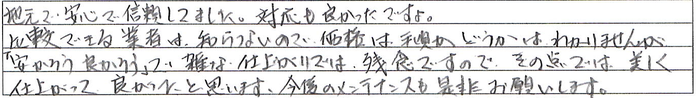 地元で安心で信頼してました。対応も良かったですよ。
比較できる業者は、知らないので価格は手頃かどうかはわかりませんが
「安かろう良かろう」で雑な仕上がりでは、残念ですので、その点では美しく
仕上がって良かったと思います、今後のメンテナンスも是非お願いします。